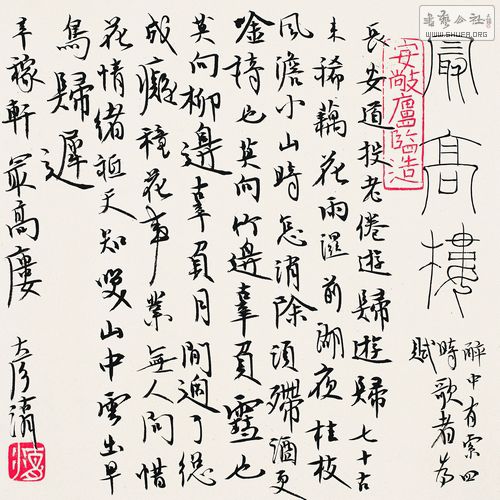 最高樓
醉中有索四
時歌者為
賦
安敞廬臨造
長安道投老倦遊歸遊歸七十古
來稀藕花雨濕前湖夜桂枝
風澹小山時怎消除須殢酒更
唫詩也莫向竹邊辜負雪也
莫向柳邊辜負月閒過了總
成癡種花事業無人問惜
花情緒祗天知笑山中雲出早
鳥歸遲
辛稼軒最高樓
書藝公社
WWW.SHUFA.ORG